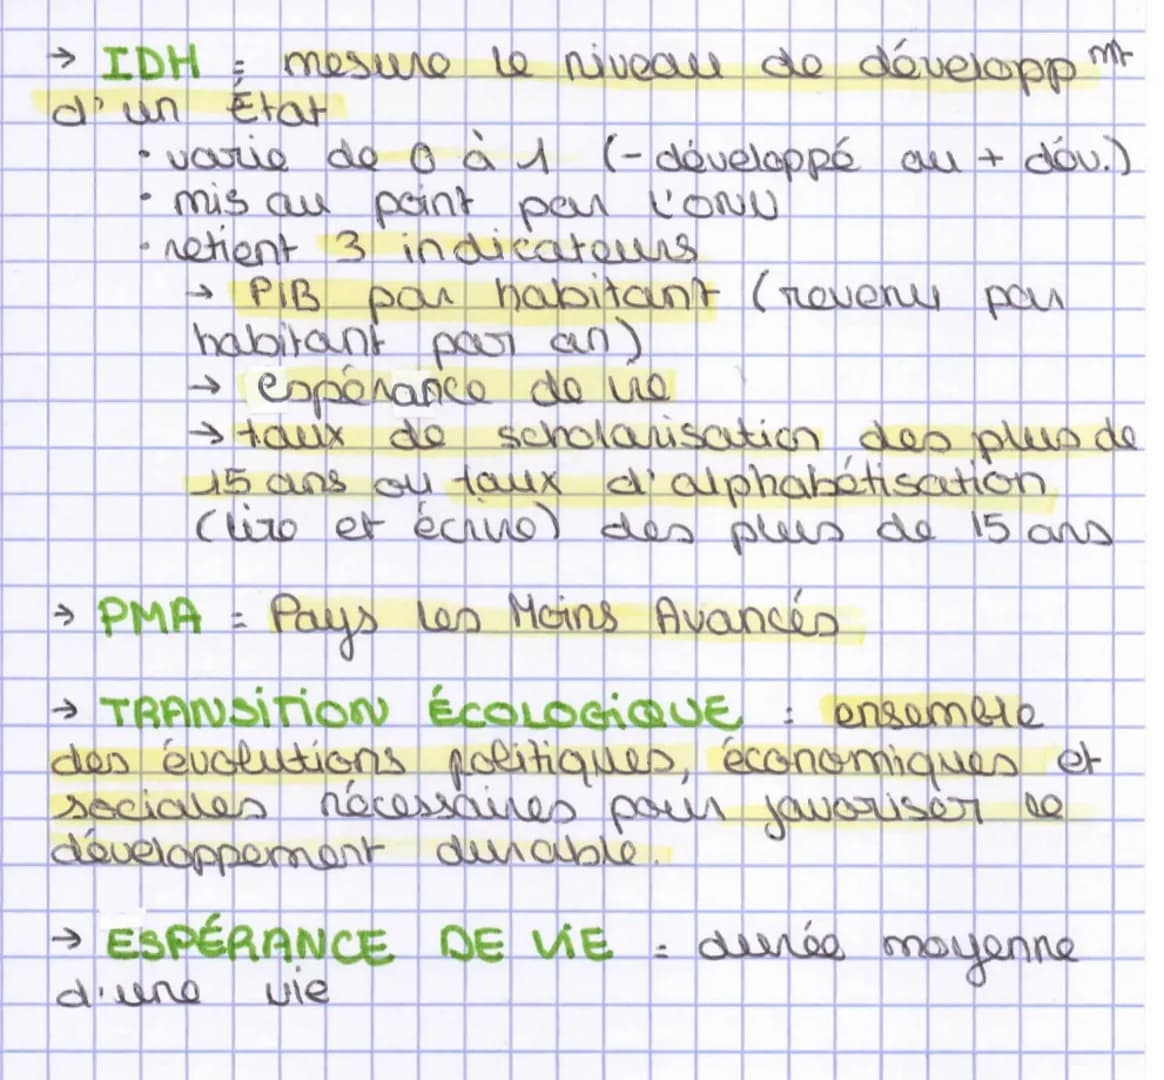 → IDH : mesure le niveau de développ mt
d'un État
• varie de 0 à 1 (- développé au + dév.)
• mis au point par l'ONU
• retient 3 indicateurs
→ PIB par habitant (revenu par
habitant par an)
→ espérance de vie
→ taux de scholarisation des plus de
15 ans ou taux d'alphabétisation
(lire et écrire) des plus de 15 ans
→ PMA = Pays les Moins Avancés
→ TRANSITION ÉCOLOGIQUE : ensemble
des évolutions politiques, économiques et
sociales nécessaires pour favoriser le
développement durable.
→ ESPÉRANCE DE VIE = durée moyenne
d'une vie